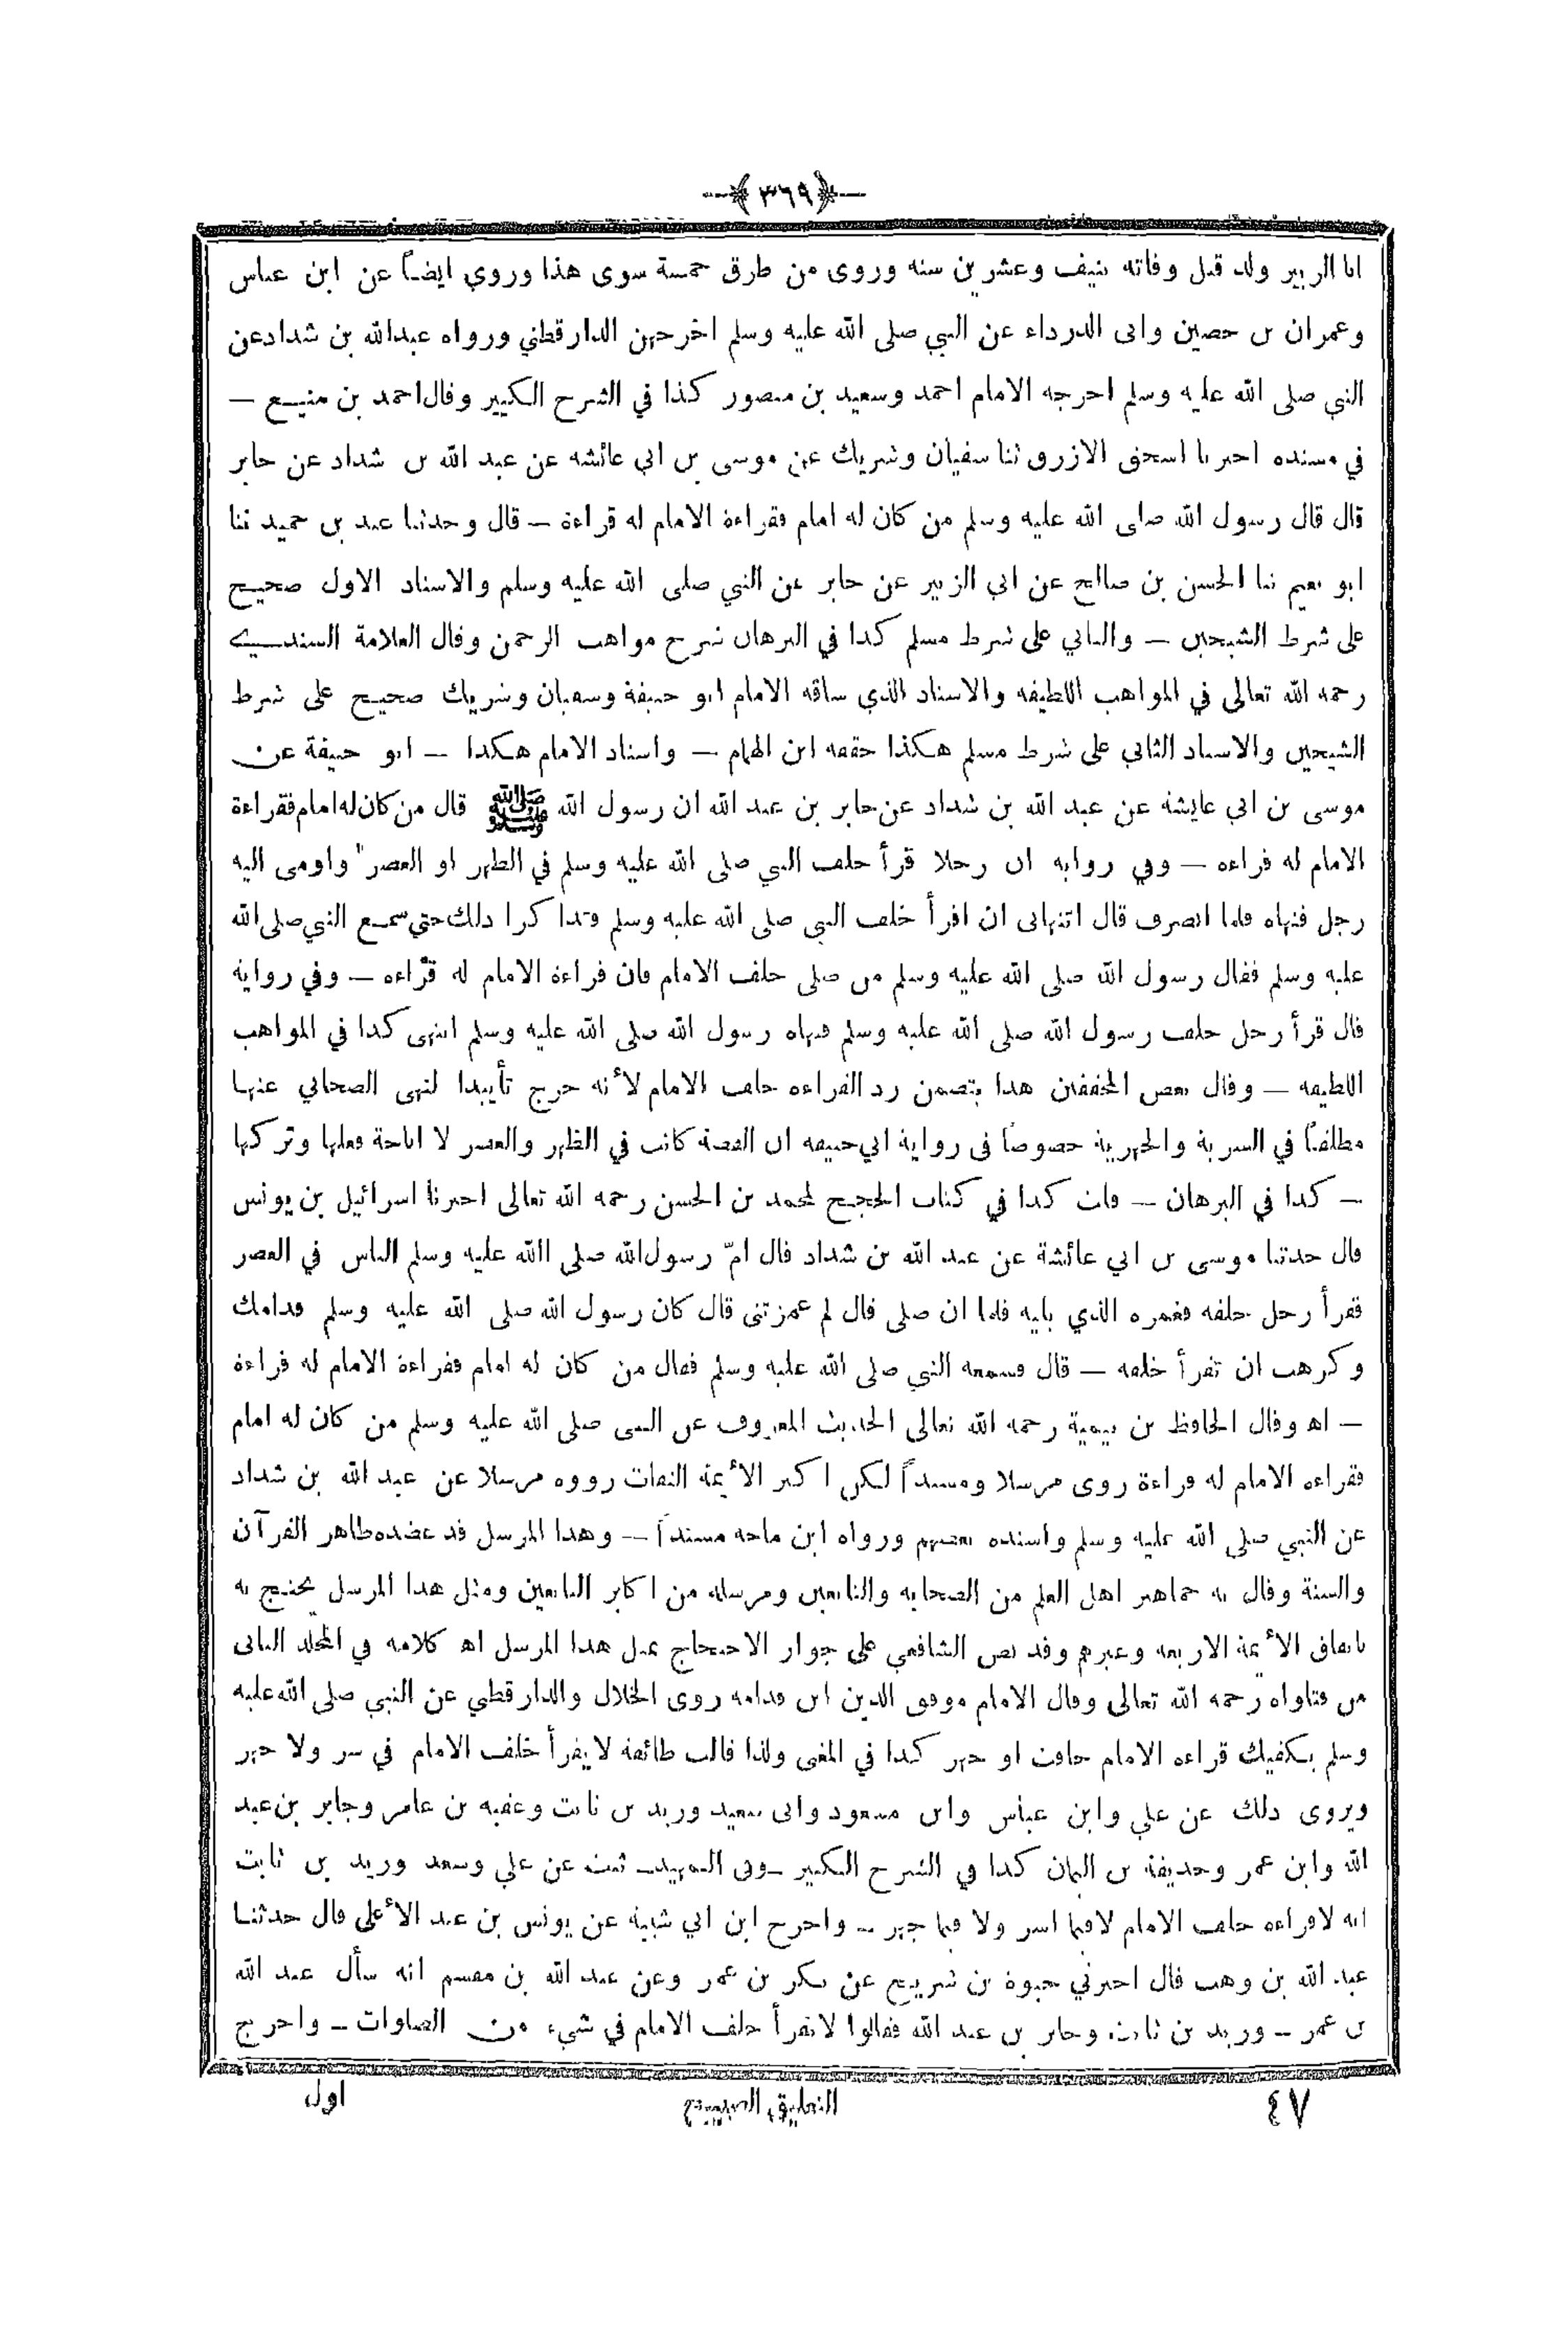 ٣٦٩
ابا الزبير ولد قبل وفاته بنيف وعشرين سنه وروى من طرق خمسة سوى هذا وروي ايضاً عن ابن عباس
وعمران بن حصين وابى الدرداء عن النبي صلى الله عليه وسلم اخرجهن الدارقطني ورواه عبدالله بن شداد عن
النبي صلى الله عليه وسلم اخرجه الامام احمد وسعيد بن منصور كذا في الشرح الكبير وقال احمد بن منيع —
في مسنده اخبرنا اسحق الازرق ثنا سفيان وشريك عن موسى بن ابي عائشه عن عبد الله بن شداد عن جابر
قال قال رسول الله صلى الله عليه وسلم من كان له امام فقراءة الامام له قراءة — قال وحدثنا عبد بن حميد ثنا
ابو نعيم ثنا الحسن بن صالح عن ابي الزبير عن جابر عن النبي صلى الله عليه وسلم والاسناد الاول صحيح
على شرط الشيخين — والثاني على شرط مسلم كذا في البرهان شرح مواهب الرحمن وقال العلامة السندي
رحمه الله تعالى في المواهب اللطيفه والاسناد الذي ساقه الامام ابو حنيفة وسفيان وشريك صحيح على شرط
الشيخين والاسناد الثاني على شرط مسلم هكذا حققه ابن الهمام — واسناد الامام هكذا — ابو حنيفة عن
موسى بن ابي عايشة عن عبد الله بن شداد عن جابر بن عبد الله ان رسول الله ﷺ قال من كان له امام فقراءة
الامام له قراءه — وفي روايه ان رجلا قرأ خلف النبي صلى الله عليه وسلم في الظهر او العصر واومى اليه
رجل فنهاه فلما انصرف قال اتنهانى ان اقرأ خلف النبي صلى الله عليه وسلم فتذاكرا ذلك حتي سمع النبي صلى الله
عليه وسلم فقال رسول الله صلى الله عليه وسلم من صلى خلف الامام فان قراءة الامام له قراءه — وفي رواية
قال قرأ رجل خلف رسول الله صلى الله عليه وسلم فنهاه رسول الله صلى الله عليه وسلم انتهى كذا في المواهب
اللطيفه — وقال بعض المحققين هذا يتضمن رد القراءه خلف الامام لأنه خرج تأييدا لنهى الصحابي عنها
مطلقاً في السرية والجهرية خصوصاً فى رواية ابي حنيفه ان القصة كانت في الظهر والعصر لا اباحة فعلها وتركها
— كذا في البرهان — قلت كذا في كتاب الحجج لمحمد بن الحسن رحمه الله تعالى اخبرنا اسرائيل بن يونس
قال حدثنا موسى بن ابي عائشة عن عبد الله بن شداد قال امّ رسول الله صلى الله عليه وسلم الناس في العصر
فقرأ رجل خلفه فغمزه الذي يليه فلما ان صلى قال لم غمزتنى قال كان رسول الله صلى الله عليه وسلم قدامك
وكرهت ان تقرأ خلفه — قال فسمعه النبي صلى الله عليه وسلم فقال من كان له امام فقراءة الامام له قراءة
— اه وقال الحافظ بن تيمية رحمه الله تعالى الحديث المعروف عن النبى صلى الله عليه وسلم من كان له امام
فقراءه الامام له قراءة روى مرسلا ومسنداً لكن اكثر الأئمة الثقات رووه مرسلا عن عبد الله بن شداد
عن النبي صلى الله عليه وسلم واسنده بعضهم ورواه ابن ماجه مسنداً — وهذا المرسل قد عضده ظاهر القرآن
والسنة وقال به جماهير اهل العلم من الصحابه والتابعين ومرسله من اكابر التابعين ومثل هذا المرسل يحتج به
باتفاق الأئمة الاربعه وغيرهم وقد نص الشافعي على جواز الاحتجاج بمثل هذا المرسل اه كلامه في المجلد الثانى
من فتاواه رحمه الله تعالى وقال الامام موفق الدين ابن قدامه روى الخلال والدارقطي عن النبي صلى الله عليه
وسلم يكفيك قراءه الامام خافت او جهر كذا في المغنى ولذا قالت طائفة لا يقرأ خلف الامام في سر ولا جهر
ويروى ذلك عن علي وابن عباس وابن مسعود وابى سعيد وزيد بن ثابت وعقبه بن عامر وجابر بن عبد
الله وابن عمر وحذيفة بن اليمان كذا في الشرح الكبير — وفى التمهيد — ثبت عن علي وسعد وزيد بن ثابت
انه لا قراءه خلف الامام لا فيما اسر ولا فيما جهر — واخرج ابن ابي شيبة عن يونس بن عبد الأعلى قال حدثنا
عبد الله بن وهب قال اخبرني حيوة بن شريح عن بكر بن عمر وعن عبد الله بن مقسم انه سأل عبد الله
بن عمر — وزيد بن ثابت وجابر بن عبد الله فقالوا لا تقرأ خلف الامام في شيء من الصلوات — واخرج
٤٧ التعليق الصبيح اول